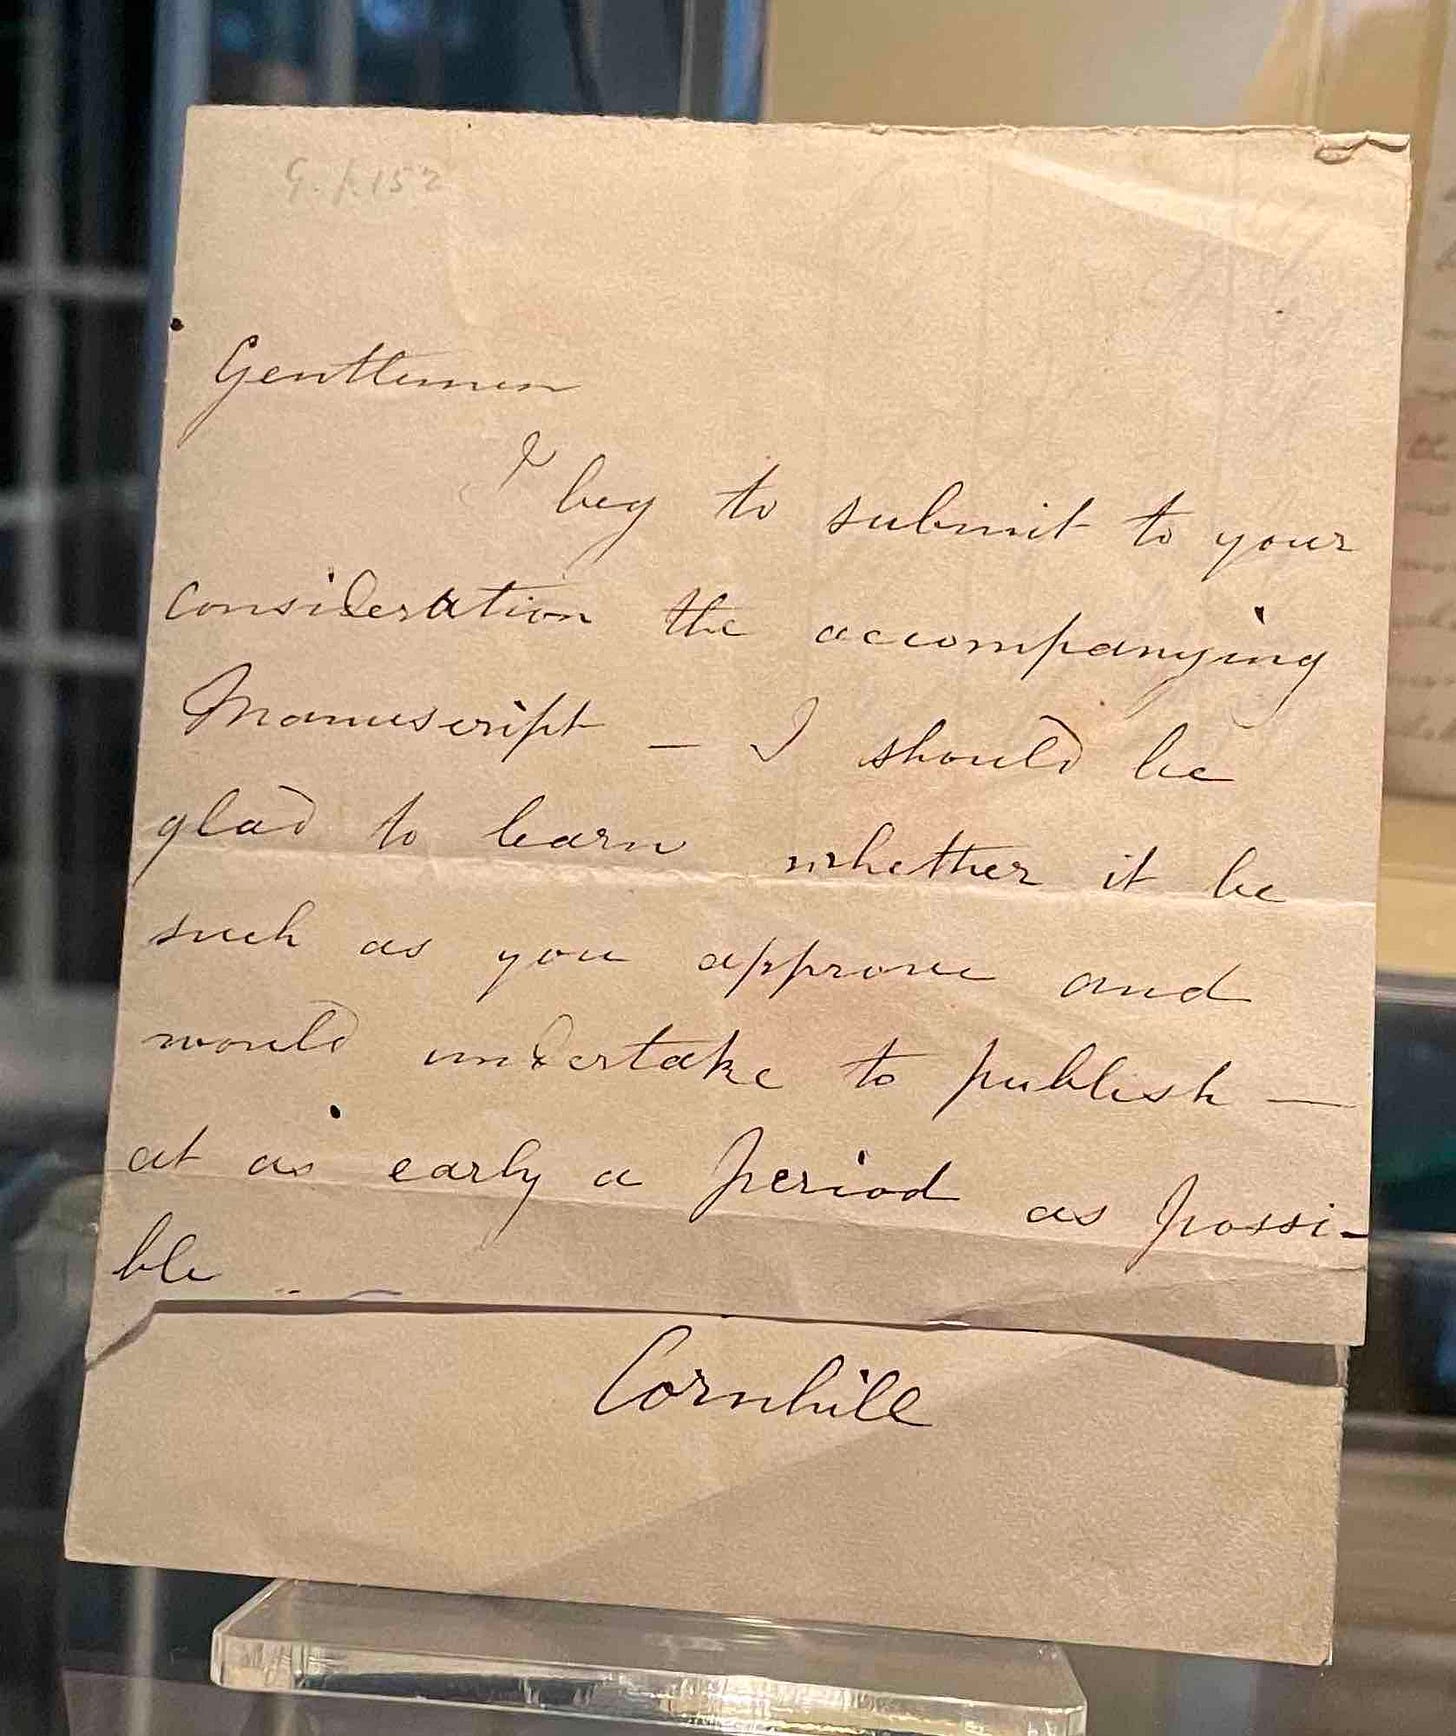 Gentlemen
I beg to submit to your
consideration the accompanying
Manuscript – I should be
glad to learn whether it be
such as you approve and
would undertake to publish –
at as early a period as possi-
ble
Cornhill